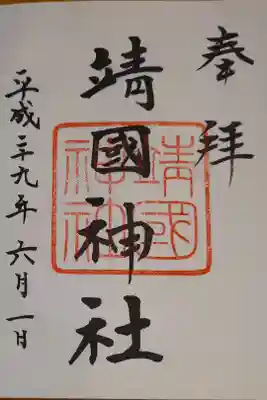 奉拝
靖國神社
靖國神社
平成二十九年六月一日